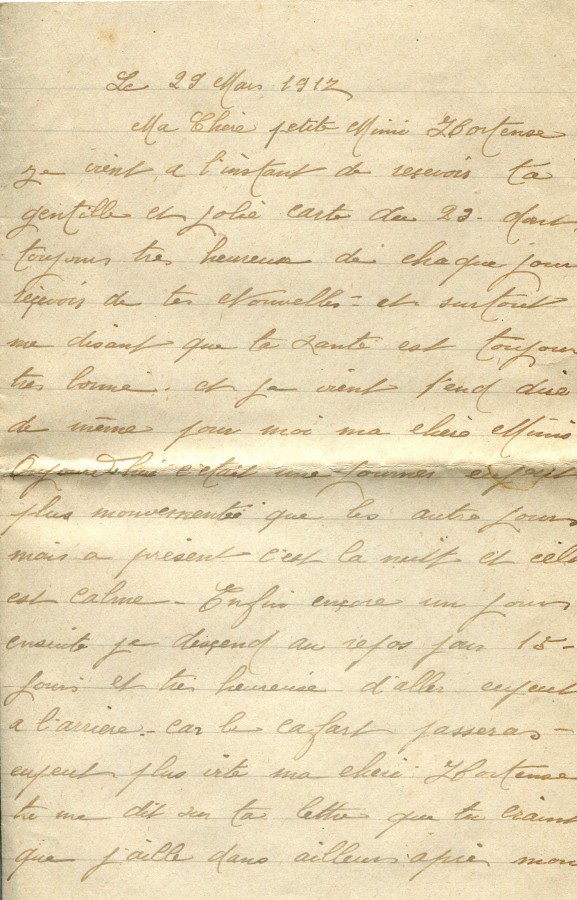 Le 29 Mars 1917
Ma Chère petite Mimi Hortense
je vient a l'instant de resevoir ta
gentille et jolie carte du 23. dont
toujours tres heureux de chaque jour
reçevois de tes Nouvelles - et surtout
me disant que ta santé est toujour
tres bonne. et je vient t'end dire
de même pour moi ma chère Mimi
Aujourd'hui c'était une journer
plus mouvementée que les autre jours
mais a présent c'est la nuit et cela
est calme - Enfin ençore un jours
ensuite je desçend au repos pour 15 -
jours et tres heureuse d'aller
a l'arriere - car le cafart passeras -
plus vite ma chère Hortense
tu me dit sur ta lettre que tu craint
que j'aille dans ailleurs après mon